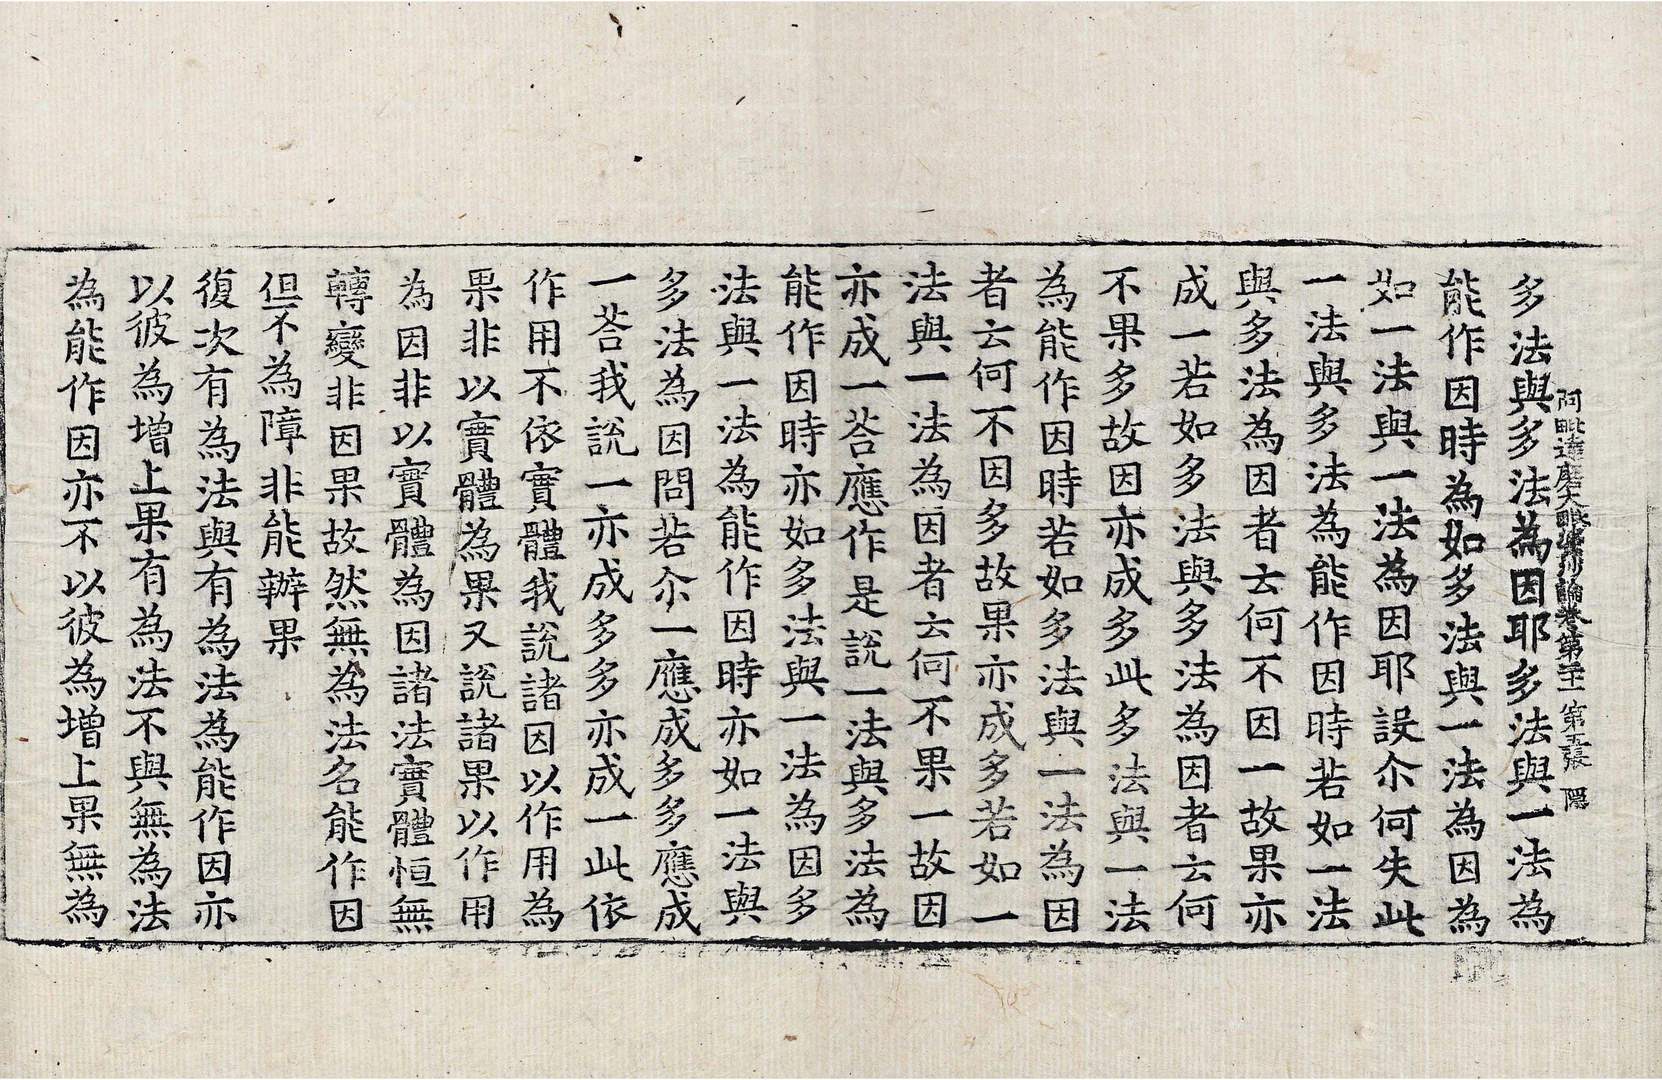 阿毗達磨大毗婆沙論卷第二十一 第五張 隱
多法與多法為因耶多法與一法為
能作因時為如多法與一法為因為
如一法與一法為因耶設尒何失此
一法與多法為能作因時若如一法
與多法為因者云何不因一故果亦
成一若如多法與多法為因者云何
不果多故因亦成多此多法與一法
為能作因時若如多法與一法為因
者云何不因多故果亦成多若如一
法與一法為因者云何不果一故因
亦成一荅應作是說一法與多法為
能作因時亦如多法與一法為因多
法與一法為能作因時亦如一法與
多法為因問若尒一應成多多應成
一荅我說一亦成多多亦成一此依
作用不依實體我說諸因以作用為
果非以實體為果又說諸果以作用
為因非以實體為因諸法實體恒無
轉變非因果故然無為法名能作因
但不為障非能辦果
復次有為法與有為法為能作因亦
以彼為增上果有為法不與無為法
為能作因亦不以彼為增上果無為